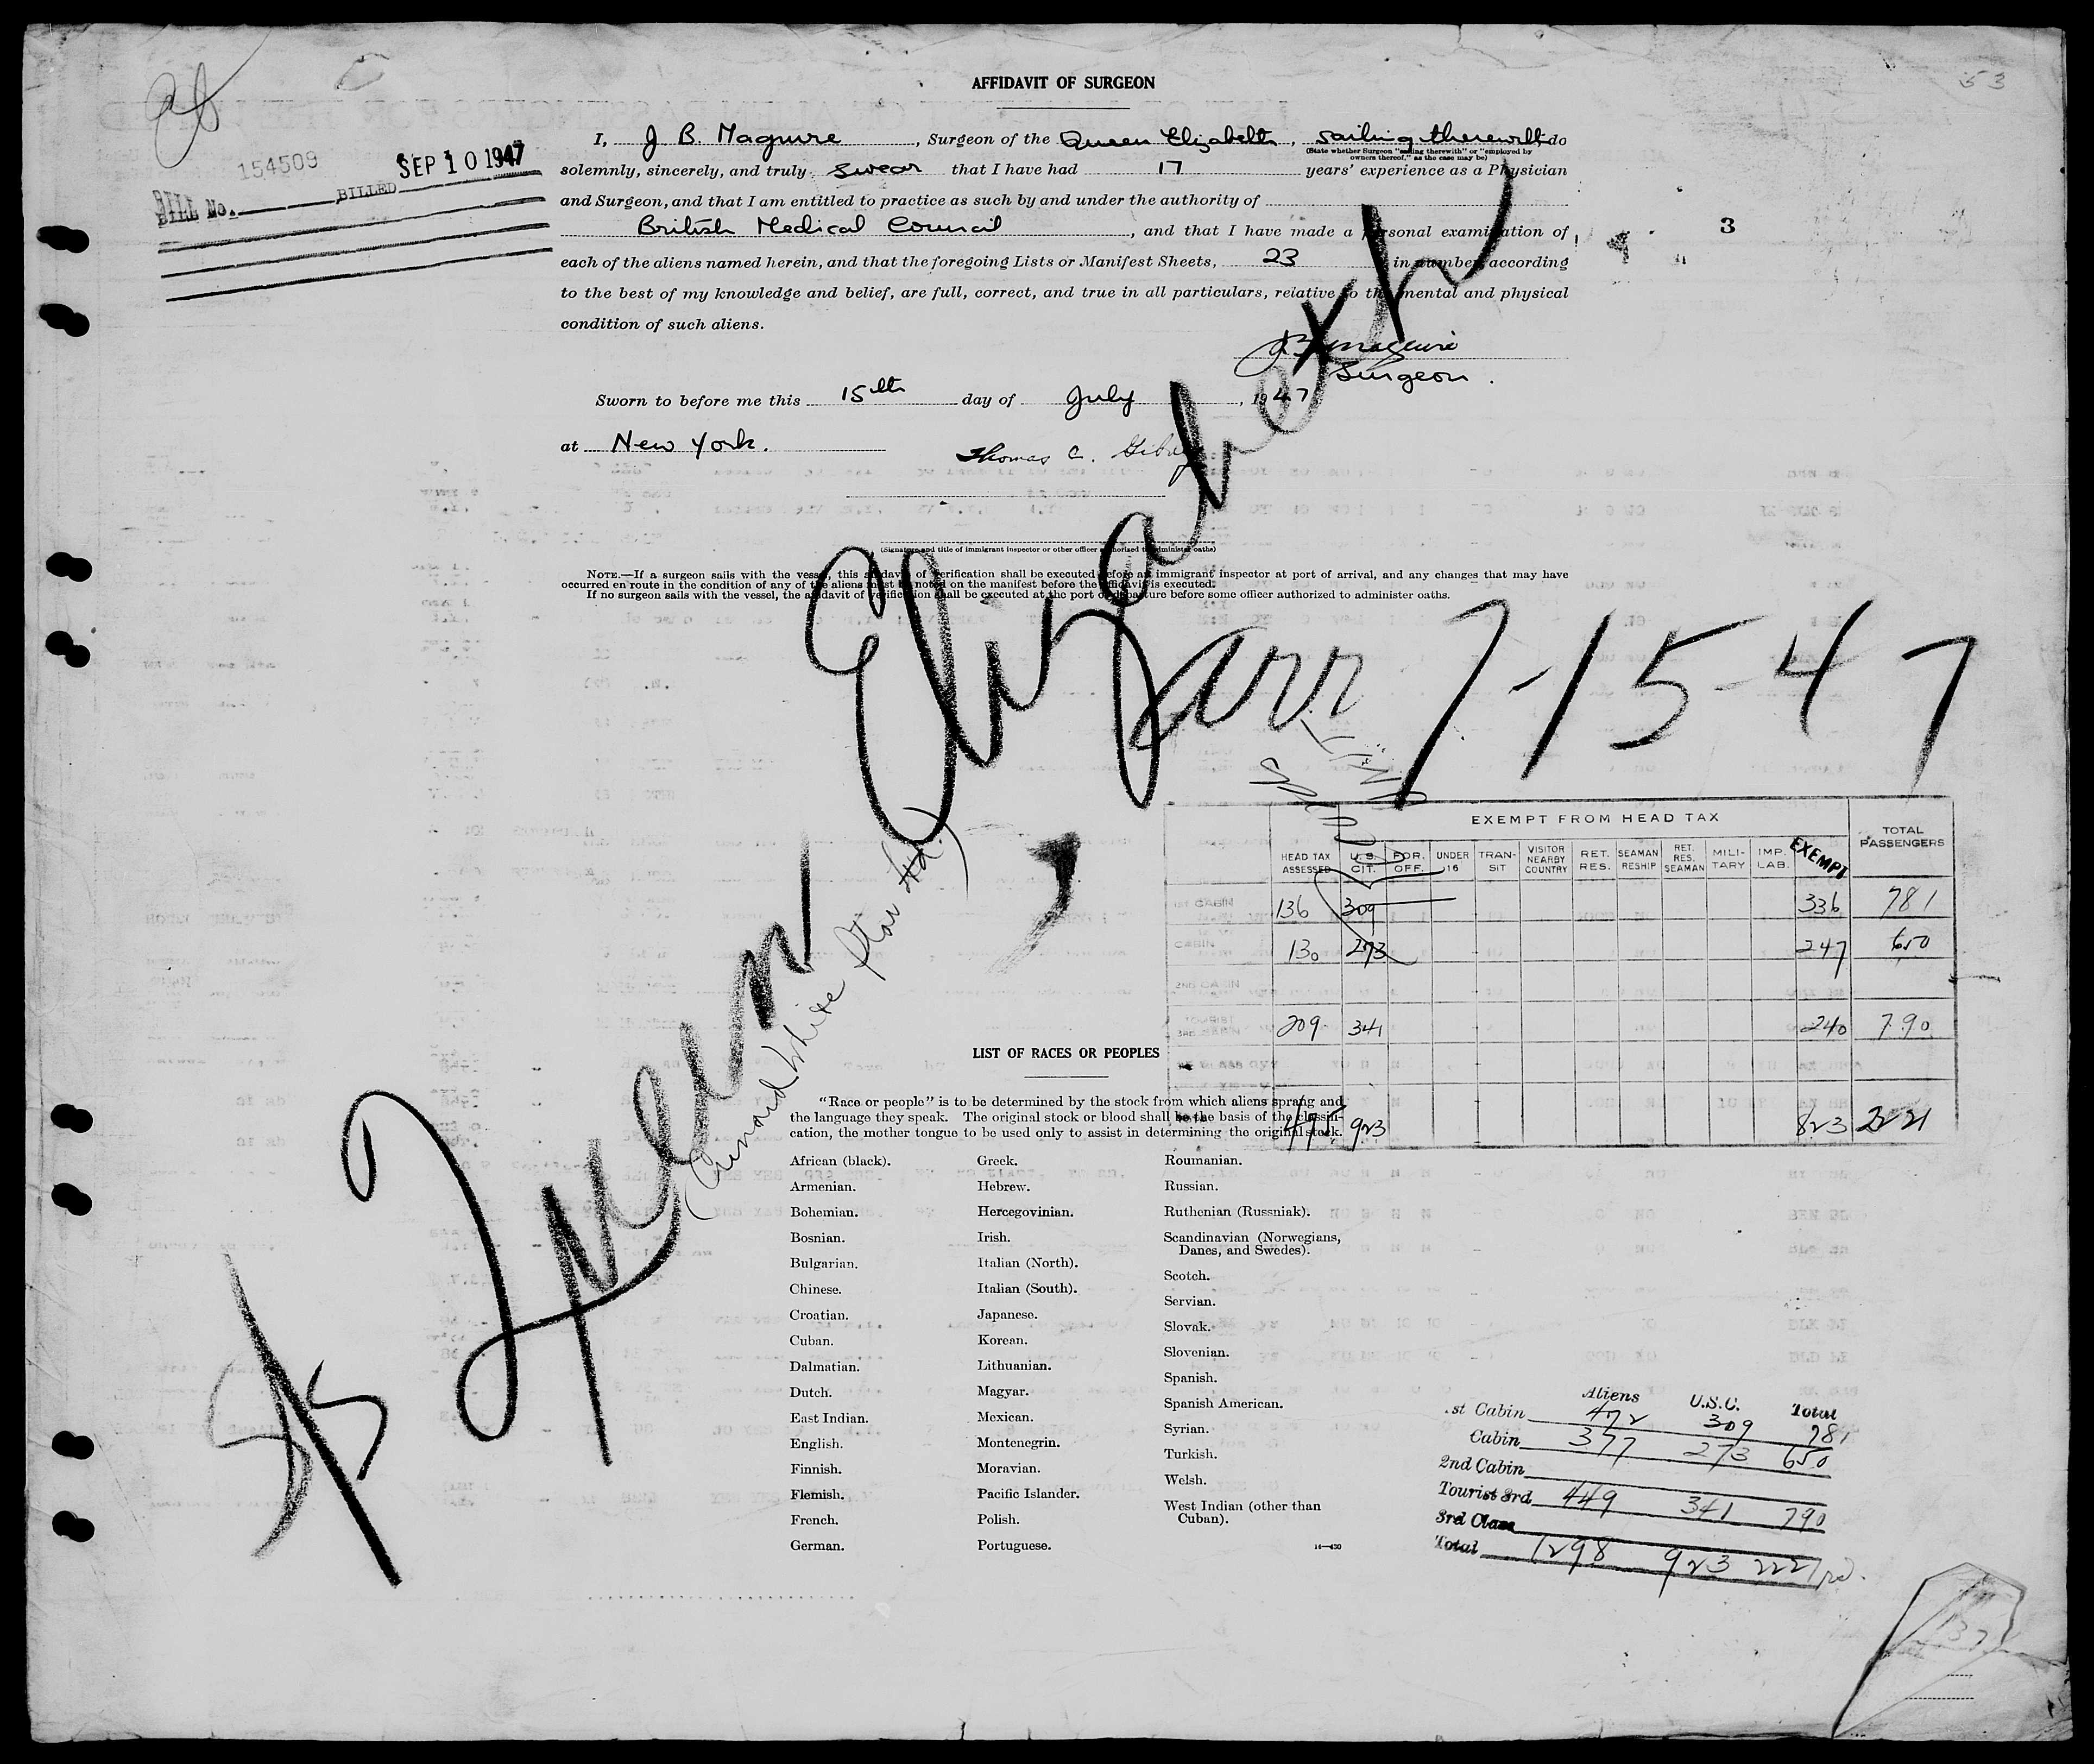 53
AFFIDAVIT OF SURGEON
I, J B. Maguire, Surgeon of the Queen Elizabeth, sailing therewith do
(State whether Surgeon "sailing therewith" or "employed by
owners thereof," as the case may be)
solemnly, sincerely, and truly swear that I have had 17 years' experience as a Physician
and Surgeon, and that I am entitled to practice as such by and under the authority of
British Medical Council, and that I have made a personal examination of
each of the aliens named herein, and that the foregoing Lists or Manifest Sheets, 23 in number, according
to the best of my knowledge and belief, are full, correct, and true in all particulars, relative to the mental and physical
condition of such aliens.
154509
BILL No. BILLED SEP 10 1947
3
J B Maguire
Surgeon.
Sworn to before me this 15th day of July, 1947
at New York. Thomas C.
(Signature and title of immigrant inspector or other officer authorized to administer oaths)
NOTE.—If a surgeon sails with the vessel, this affidavit of verification shall be executed before an immigrant inspector at port of arrival, and any changes that may have
occurred en route in the condition of any of the aliens must be noted on the manifest before the affidavit is executed.
If no surgeon sails with the vessel, the affidavit of verification shall be executed at the port of departure before some officer authorized to administer oaths.
SS Queen Elizabeth
(Cunard White Star Ltd.)
arr 7-15-47
EXEMPT FROM HEAD TAX
HEAD TAX ASSESSED U.S. CIT. FOR. OFF. UNDER 16 TRAN- SIT VISITOR NEARBY COUNTRY RET. RES. SEAMAN RESHIP RET. RES. SEAMAN MILI- TARY IMP. LAB. EXEMPT TOTAL PASSENGERS
1ST CABIN 136 309 336 781
CABIN 130 273 247 650
2ND CABIN
TOURIST 3RD CABIN 209 341 240 790
475 923 823 2221
LIST OF RACES OR PEOPLES
"Race or people" is to be determined by the stock from which aliens sprang and
the language they speak. The original stock or blood shall be the basis of the classifi-
cation, the mother tongue to be used only to assist in determining the original stock.
African (black).
Armenian.
Bohemian.
Bosnian.
Bulgarian.
Chinese.
Croatian.
Cuban.
Dalmatian.
Dutch.
East Indian.
English.
Finnish.
Flemish.
French.
German.
Greek.
Hebrew.
Hercegovinian.
Irish.
Italian (North).
Italian (South).
Japanese.
Korean.
Lithuanian.
Magyar.
Mexican.
Montenegrin.
Moravian.
Pacific Islander.
Polish.
Portuguese.
Roumanian.
Russian.
Ruthenian (Russniak).
Scandinavian (Norwegians,
Danes, and Swedes).
Scotch.
Servian.
Slovak.
Slovenian.
Spanish.
Spanish American.
Syrian.
Turkish.
Welsh.
West Indian (other than
Cuban).
14—430
Aliens U.S.C. Total
1st Cabin 472 309 781
Cabin 377 273 650
2nd Cabin
Tourist 3rd 449 341 790
3rd Class
Total 1298 923 2221
137